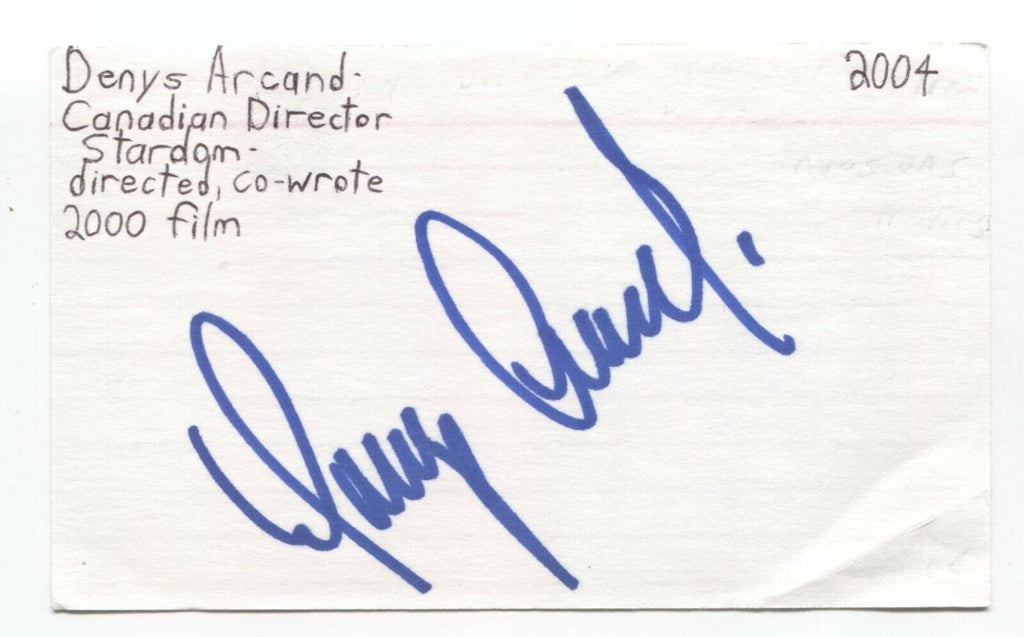 Denys Arcand-
2004
Canadian Director
Stardom-
directed, co-wrote
2000 film